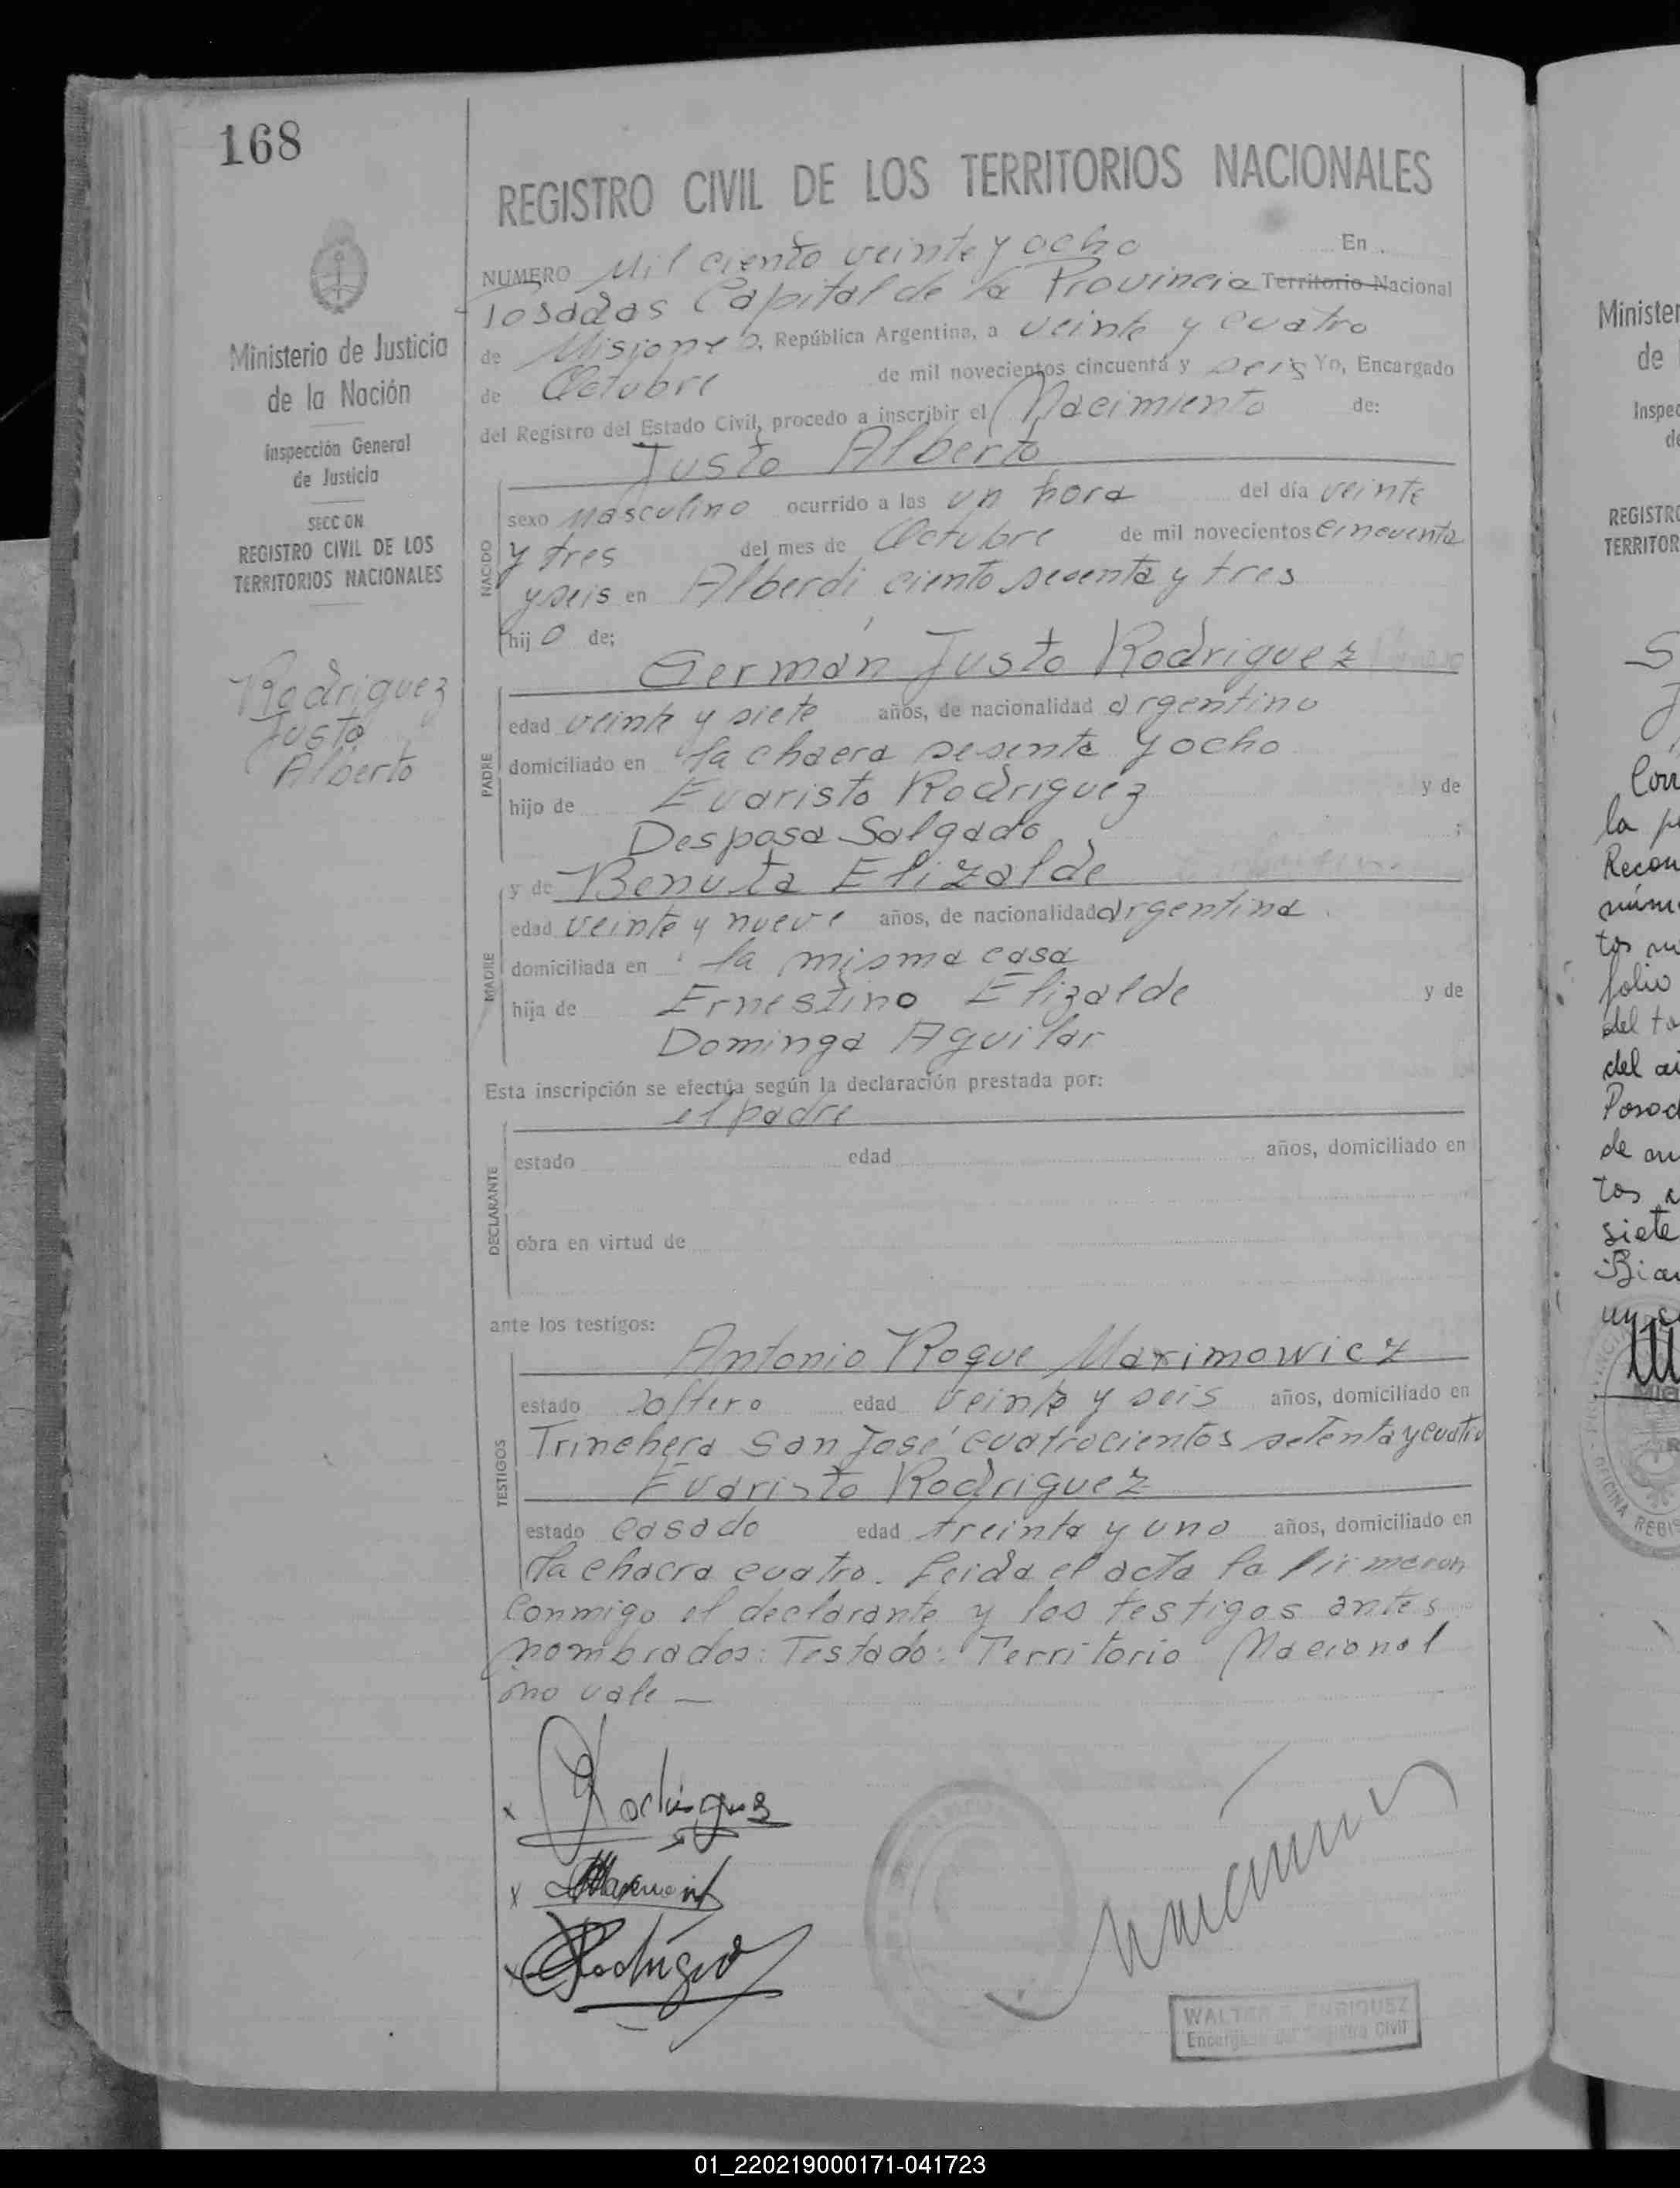 168
REGISTRO CIVIL DE LOS TERRITORIOS NACIONALES
Ministerio de Justicia
de la Nación
Inspección General
de Justicia
SECCION
REGISTRO CIVIL DE LOS
TERRITORIOS NACIONALES
Rodriguez
Justo
Alberto
NUMERO Mil ciento veinte y ocho En
Posadas Capital de la Provincia Territorio Nacional
de Misiones, República Argentina, a veinte y cuatro
de Octubre de mil novecientos cincuenta y seis Yo, Encargado
del Registro del Estado Civil, procedo a inscribir el Nacimiento de:
Justo Alberto
NACIDO
sexo masculino ocurrido a las un hora del día veinte
y tres del mes de Octubre de mil novecientos cincuenta
y seis en Alberdi ciento y tres
hijo de;
German Justo Rodriguez
PADRE
edad veinte y siete años, de nacionalidad argentino
domiciliado en la chacra sesenta y ocho
hijo de Evaristo Rodriguez y de
Desposa Salgado ;
y de Benuta Elizalde
MADRE
edad veinte y nueve años, de nacionalidad argentina
domiciliada en la misma casa
hija de Ernestino Elizalde y de
Dominga Aguilar
Esta inscripción se efectúa según la declaración prestada por:
el padre
DECLARANTE
estado edad años, domiciliado en
obra en virtud de
ante los testigos:
Antonio Roque Marimowicz
TESTIGOS
estado soltero edad veinte y seis años, domiciliado en
Trinchera San José cuatrocientos setenta y cuatro
Evaristo Rodriguez
estado casado edad treinta y uno años, domiciliado en
la chacra cuatro. Leida el acta la firmaron
conmigo el declarante y los testigos antes
nombrados: Testado: Territorio Nacional
no vale —
x Rodriguez
x
x Rodriguez
WALTER ENRIQUEZ
Encargado del Registro Civil
Minister
de
Inspec
de
REGISTRO
TERRITOR
la p
Recon
núm
folio
del to
del
Posad
de
tos
siete
OFICINA REGIS
01_220219000171-041723